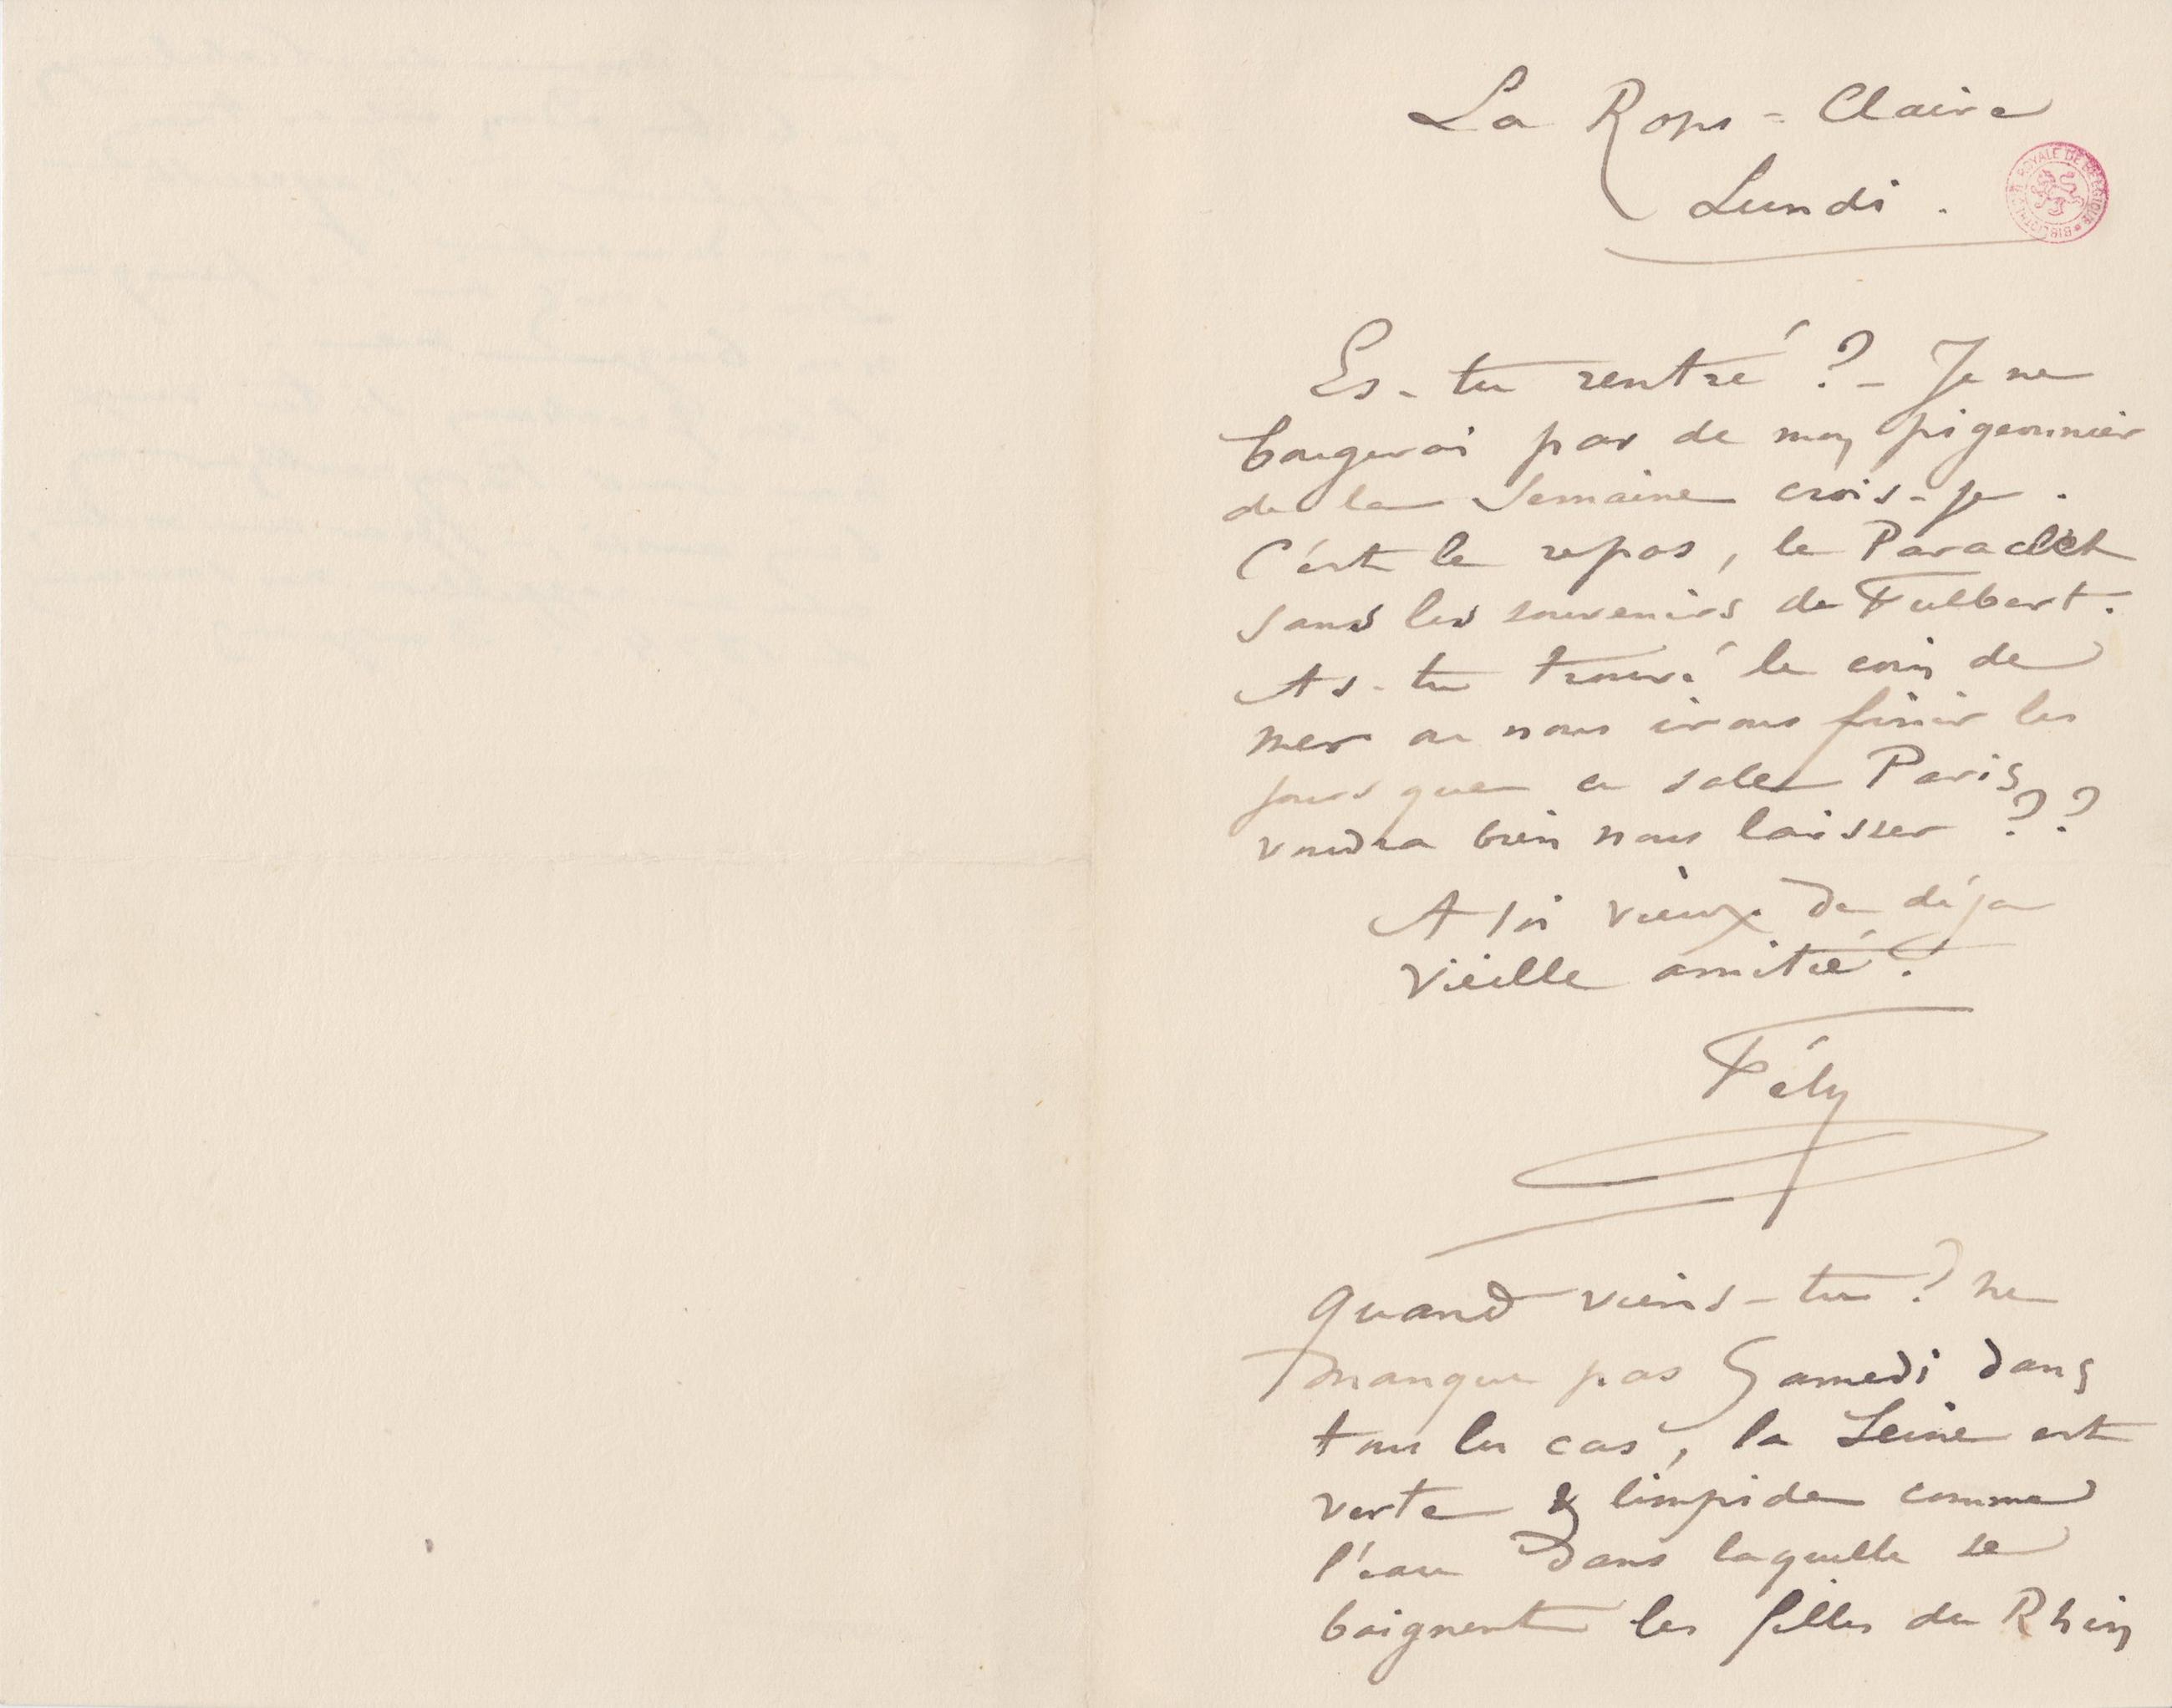 La Rops-Claire
Lundi.
BIBLIOTH. ROYALE DE BELGIQUE
Es-tu rentré ? – Je ne
bougerai pas de mon pigeonnier
de la semaine crois-je.
C'est le repos, le Paraclet
sans les souvenirs de Fulbert.
As-tu trouvé le coin de
mer ou nous irons finir les
jours que ce sale Paris
voudra bien nous laisser ??
A toi vieux de déja
vieille amitié !
Fély
Quand viens-tu ? ne
manque pas Samedi dans
tous les cas, la Seine est
verte & limpide comme
l'eau dans laquelle se
baignent les filles du Rhin